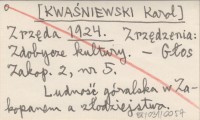 [KWAŚNIEWSKI Karol]
Zrzęda 1924. Zrzędzenia:
Zdobycze kultury. – Głos
Zakop. 2, nr 5.
Ludność góralska w Za-
kopanem a złodziejstwa.